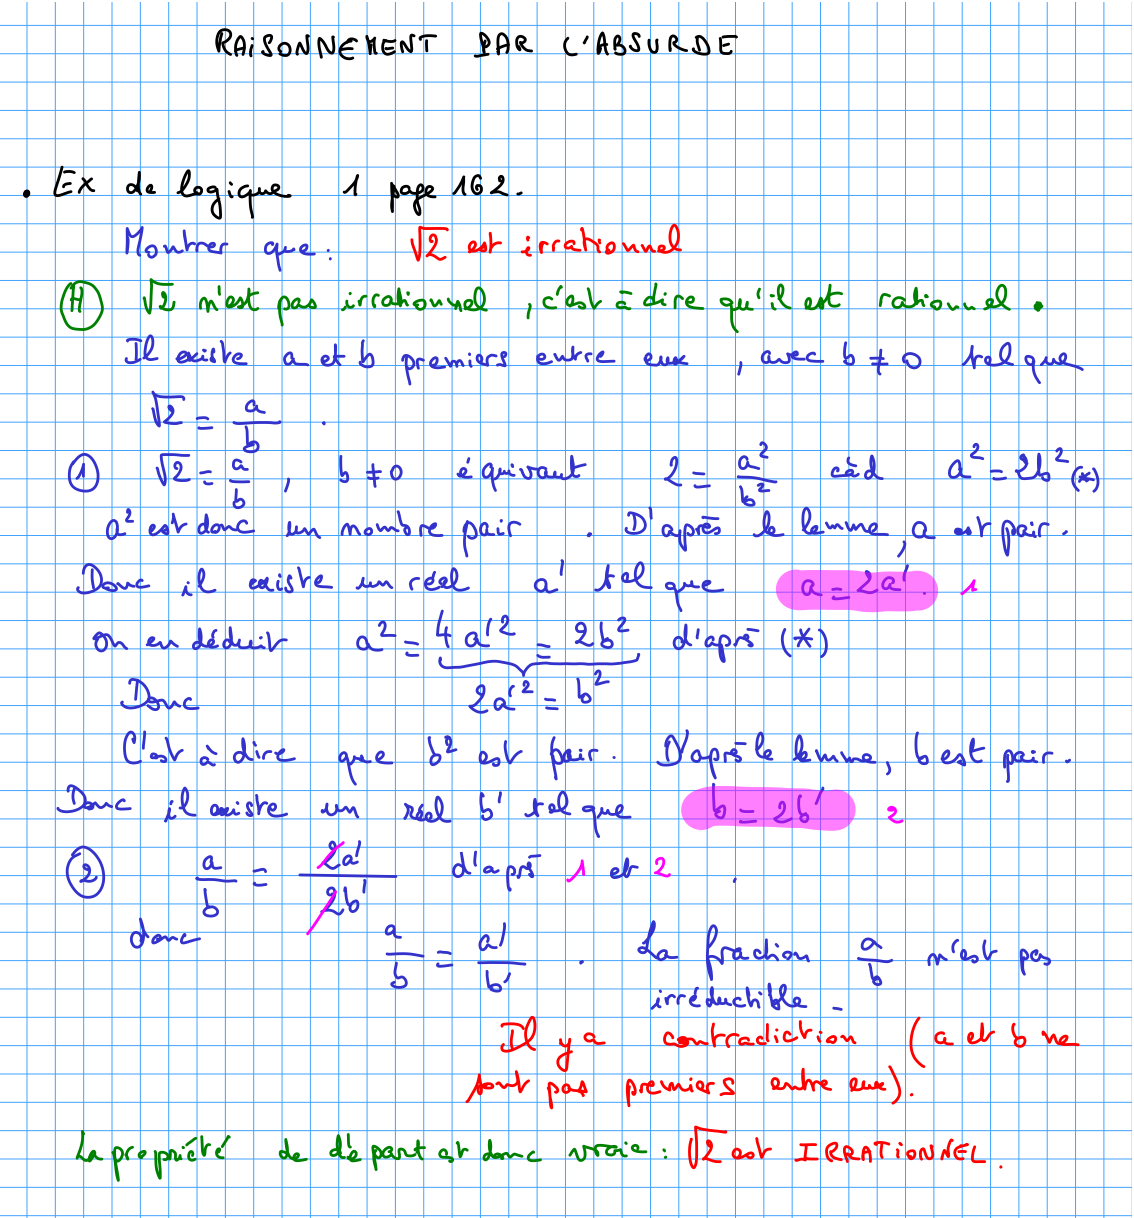 RAISONNEMENT PAR L'ABSURDE
. Ex de logique 1 page 162.
Montrer que : √2 est irrationnel
(H) √2 n'est pas irrationnel, c'est à dire qu'il est rationnel.
Il existe a et b premiers entre eux, avec b ≠ 0 tel que
√2 = a/b .
(1) √2 = a/b, b ≠ 0 équivaut 2 = a²/b² càd a² = 2b² (*)
a² est donc un nombre pair. D'après le lemme, a est pair.
Donc il existe un réel a' tel que a = 2a'. 1
On en déduit a² = 4a'² = 2b² d'après (*)
Donc 2a'² = b²
C'est à dire que b² est pair. D'après le lemme, b est pair.
Donc il existe un réel b' tel que b = 2b' 2
(2) a/b = 2a'/2b' d'après 1 et 2 .
donc a/b = a'/b' . La fraction a/b n'est pas
irréductible.
Il y a contradiction (a et b ne
sont pas premiers entre eux).
La propriété de départ est donc vraie : √2 est IRRATIONNEL.